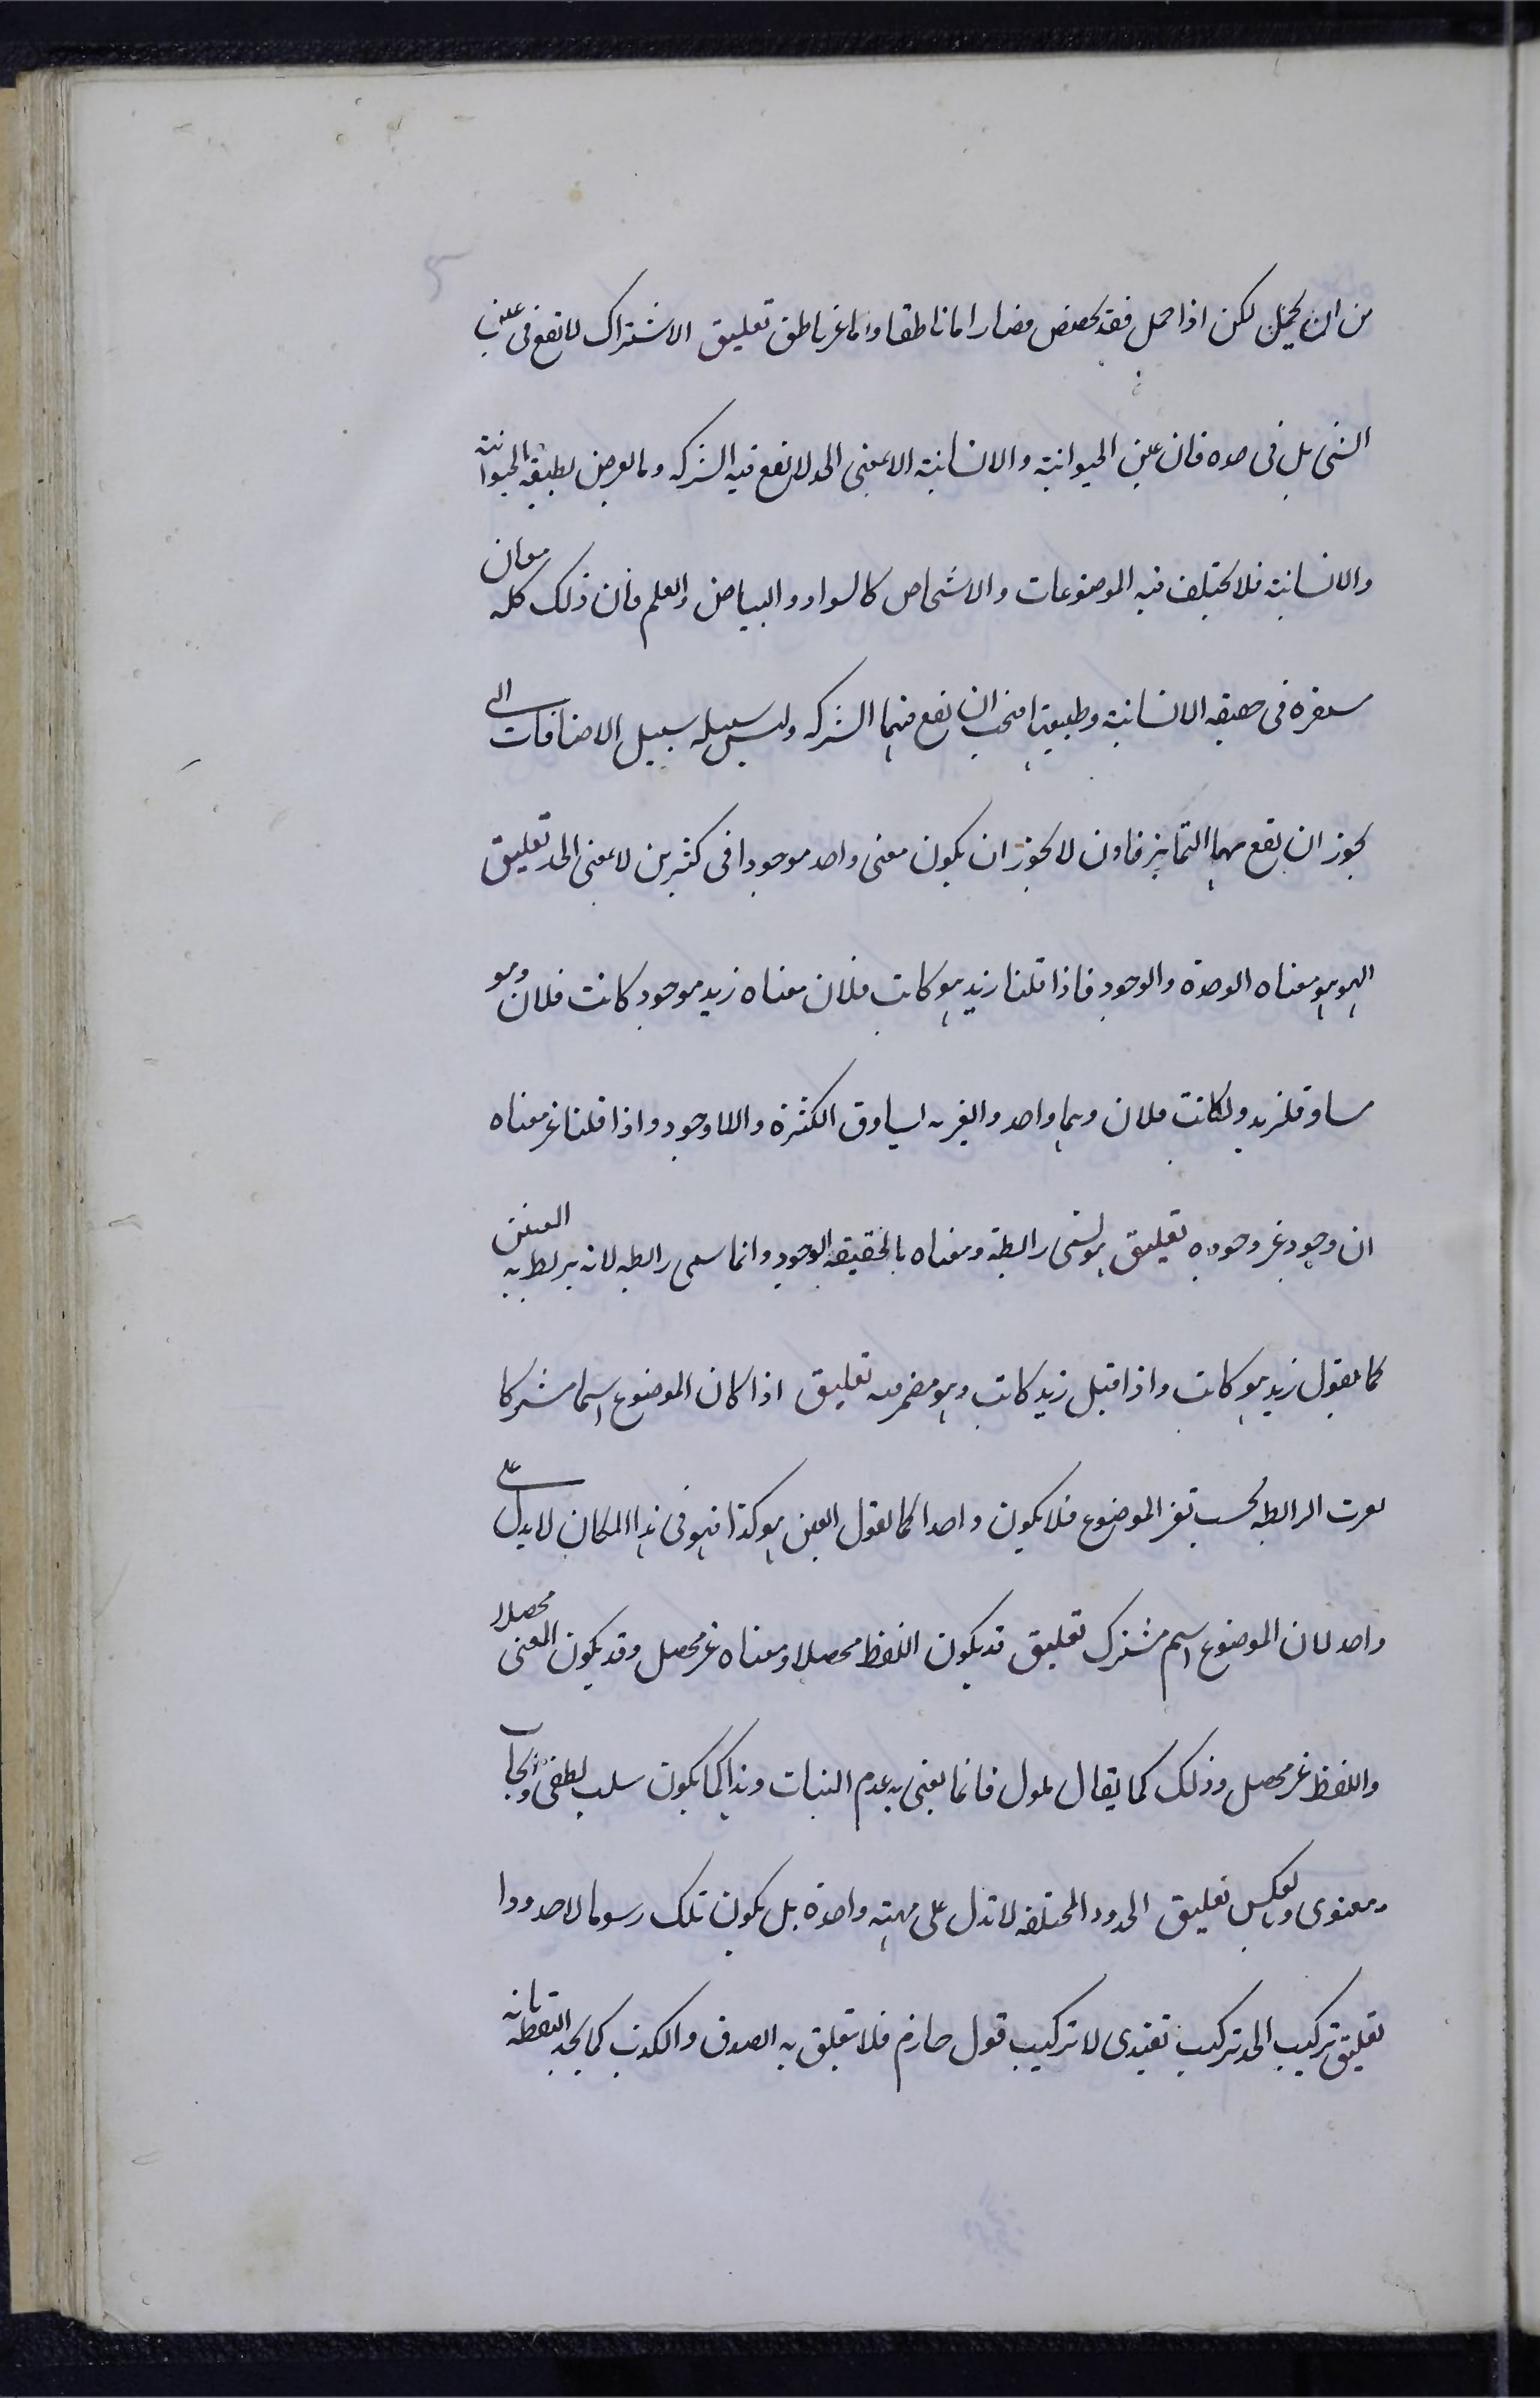 من ان يحمل لكن اذا حمل فقد تخصص فصار اما ناطقا واما غير ناطق تعليق الاشتراك لا تقع فى عين
الشى بل فى حده فان عين الحيوانية والانسانية الا بمعنى الحد لا تقع فيه الشركه وما يعرض لطبيعة الحيوانية
والانسانية فلا تختلف فيه الموضوعات والاشخاص كالسواد والبياض والعلم فان ذلك كله معان
متقررة فى حقيقه الانسانية وطبيعتها فيجب ان تقع فيها الشركه وليس سبيله سبيل الاضافات التى
يجوز ان تقع بها التمايز فاذن لا يجوز ان يكون معنى واحد موجودا فى كثيرين لا بمعنى الحد تعليق
الهوهو معناه الوحدة والوجود فاذا قلنا زيد هو كاتب فلان معناه زيد موجود كاتب فلان وهو
مساوق لزيد ولكاتب فلان وهما واحد والغيريه تساوق الكثرة واللاوجود واذا قلنا غير معناه
ان وجوده غير وجوده تعليق هو تسمى رابطة ومعناه بالحقيقة الوجود وانما سمى رابطه لانه يربط به المعنيين
كما تقول زيد هو كاتب واذا قيل زيد كاتب وهو مضمر فيه تعليق اذا كان الموضوع اسما مشتركا
الرابطه بحسب تغير الموضوع فلا يكون واحدا كما تقول العين هو كذا فهو فى هذا المكان لا يدل على
واحد لان الموضوع اسم مشترك تعليق قد يكون اللفظ محصلا ومعناه غير محصل وقد يكون المعنى محصلا
واللفظ غير محصل وذلك كما يقال فانما يعنى به عدم الثبات وهذا كما يكون سلب لفظى وايجاب
معنوى وبالعكس تعليق الحدود المختلفه لا تدل على مهية واحدة بل يكون تلك رسوما لا حدودا
تعليق تركيب الحد تركيب تقييدى لا تركيب قول جازم فلا يتعلق به الصدق والكذب كما يحد النقطة بانه